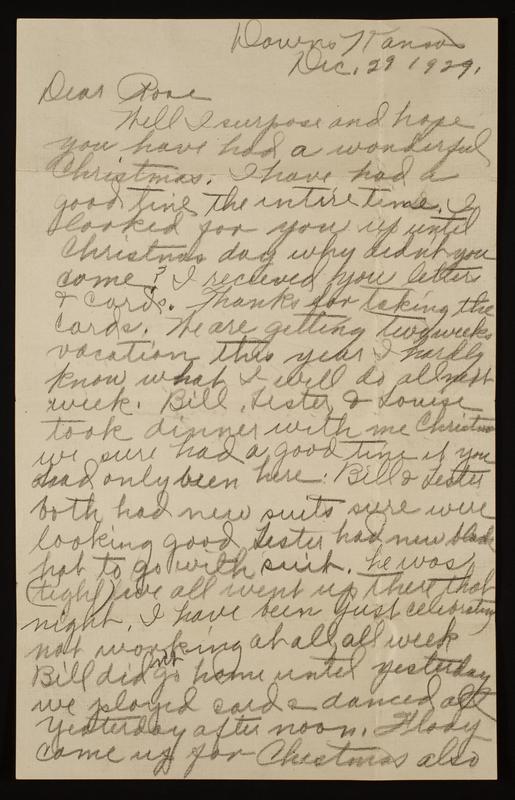 Downs Kansas
Dec. 29 1929.
Dear Rose
Well I surpose and hope
you have had a wonderful
Christmas. I have had a
good time the intire time. I
looked for you up until
Christmas day why didn't you
come? I recieved you letters
& cards. Thanks for taking the
cards. We are getting two weeks
vacation this year I hardly
know what I will do all next
week. Bill, Lester & Louise
took dinner with me Christmas
we sure had a good time if you
had only been here. Bill & Lester
both had new suits sure were
looking good Lester had new black
hat to go with suit. he was
(tight) we all went up there that
night. I have been just celebrating
not working at all, all week
Bill did not go home until yesterday
we played cards & danced all
yesterday after noon. Floay
come up for Christmas also